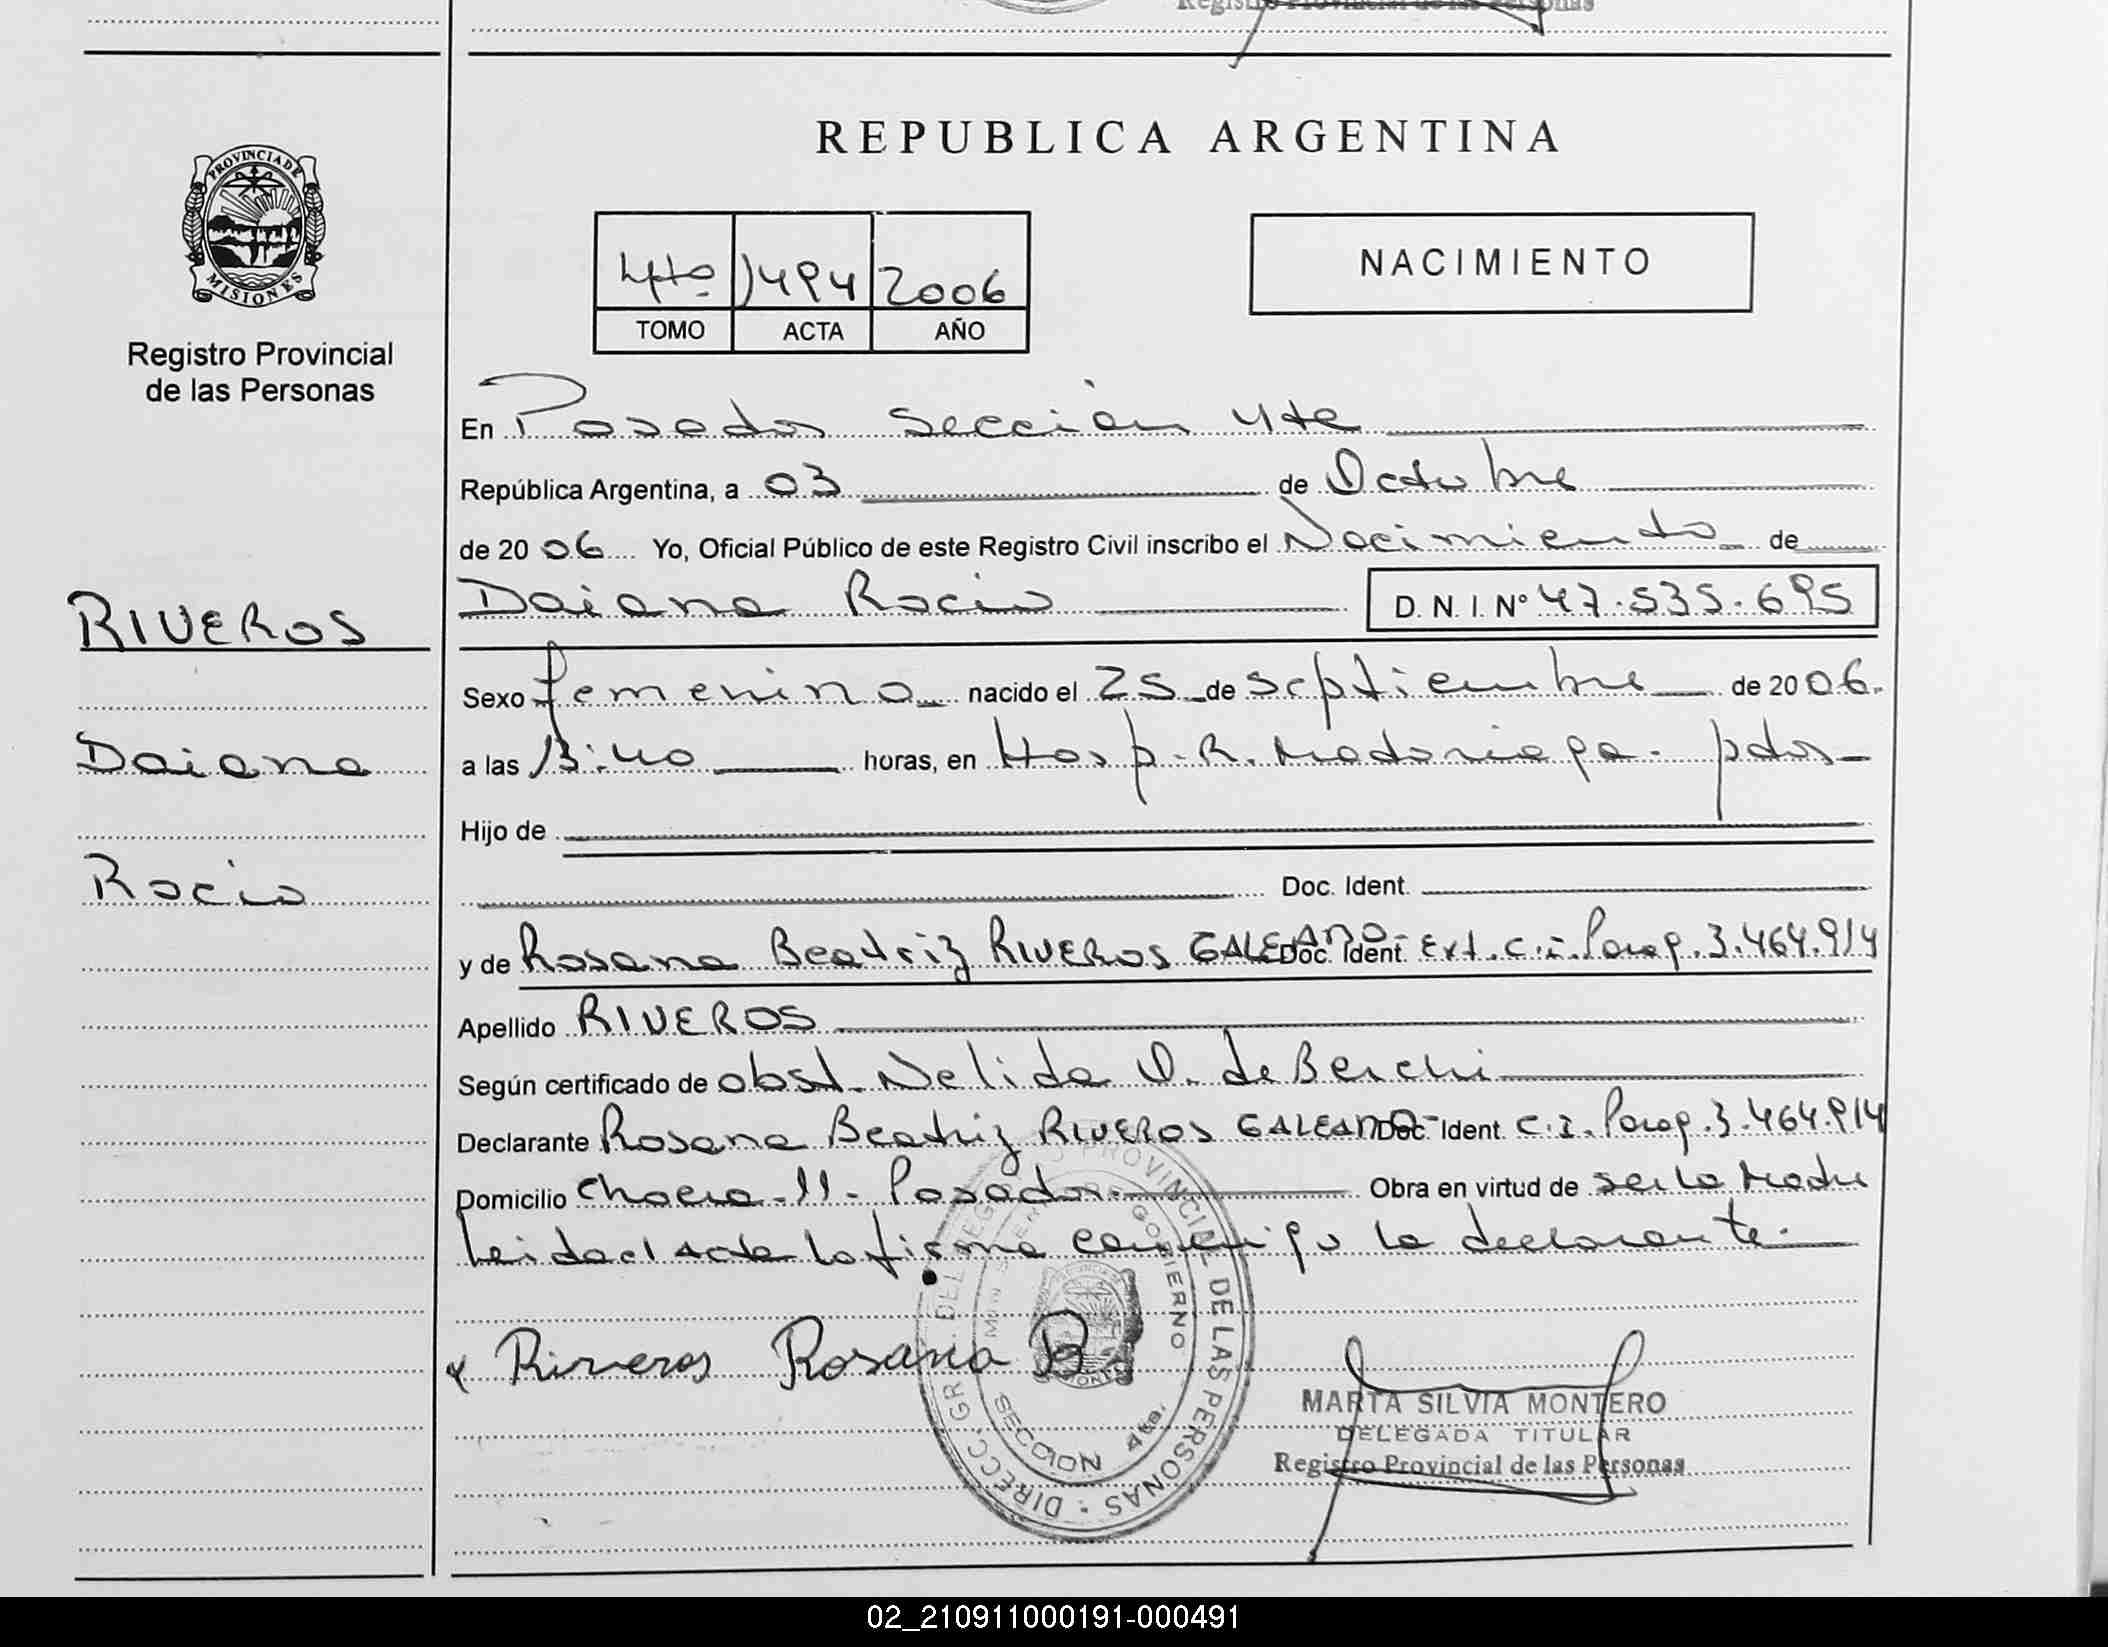 Registro Provincial de las Personas
REPUBLICA ARGENTINA
PROVINCIA DE
MISIONES
Registro Provincial
de las Personas
4to 1494 2006
TOMO ACTA AÑO
NACIMIENTO
En Posadas sección 4ta
República Argentina, a 03 de Octubre
de 2006 Yo, Oficial Público de este Registro Civil inscribo el Nacimiento de
Daiana Rocio D. N. I. N° 47.535.695
RIVEROS
Daiana
Rocio
Sexo femenino nacido el 25 de septiembre de 2006.
a las 13:40 horas, en Hosp. R. Madariaga. pdas
Hijo de
Doc. Ident.
y de Rosana Beatriz RIVEROS GALEANO- Doc. Ident. Ext. C.I. Parag. 3.464.914
Apellido RIVEROS
Según certificado de obst. Nelida O. de Berchi
Declarante Rosana Beatriz RIVEROS GALEANO- Doc. Ident. C.I. Parag. 3.464.914
Domicilio Chacra-11- Posadas. Obra en virtud de ser la Madre
Leida el Acta la firma conmigo la declarante.
Riveros Rosana B
DIRECC. GR DEL REGISTRO PROVINCIAL DE LAS PERSONAS
GOBIERNO
SECCION 4ta.
MARTA SILVIA MONTERO
DELEGADA TITULAR
Registro Provincial de las Personas
02_210911000191-000491